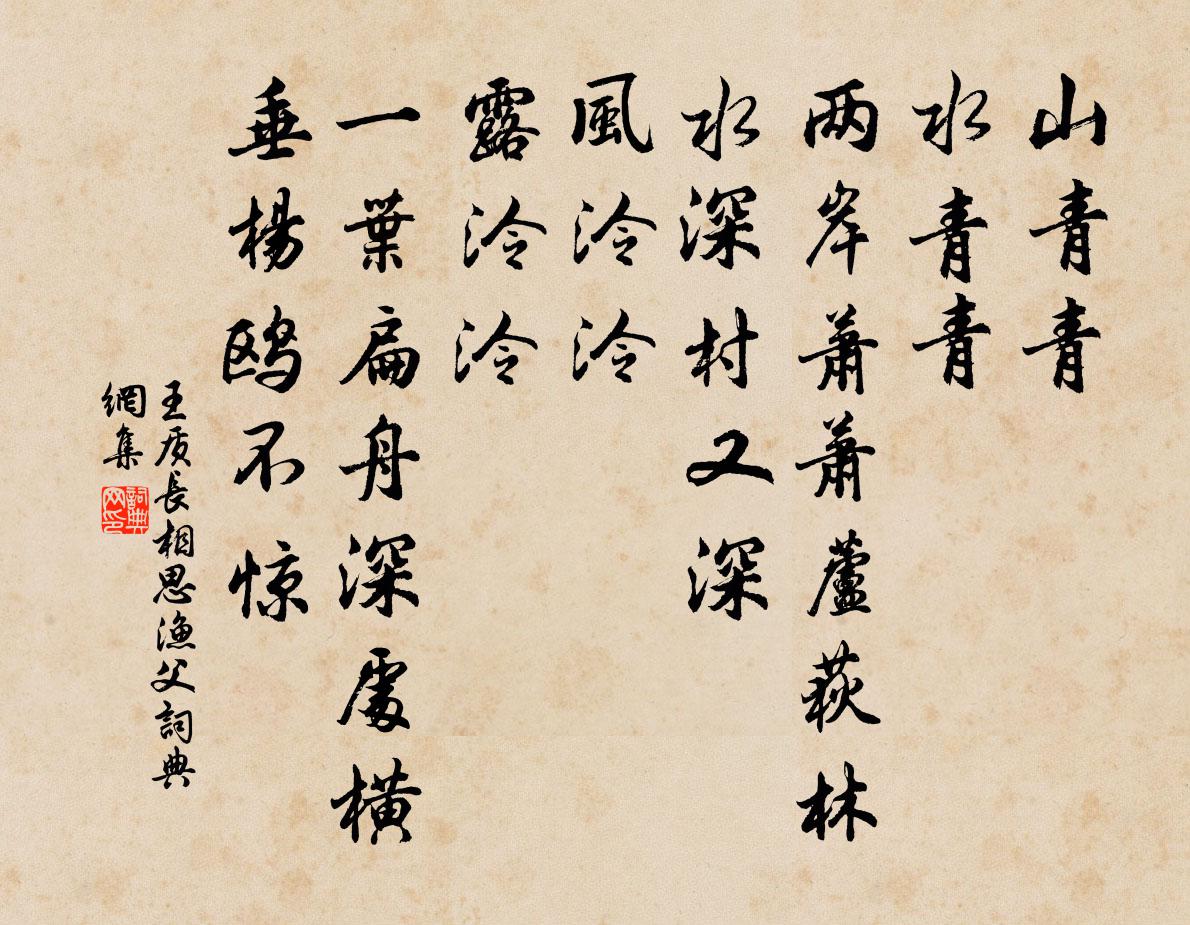 山青青
水青青
两岸萧萧蘆荻林
水深村又深
風泠泠
露泠泠
一葉扁舟深處横
垂楊鸥不惊
王质長相思漁父詞典
網集
詞典网印